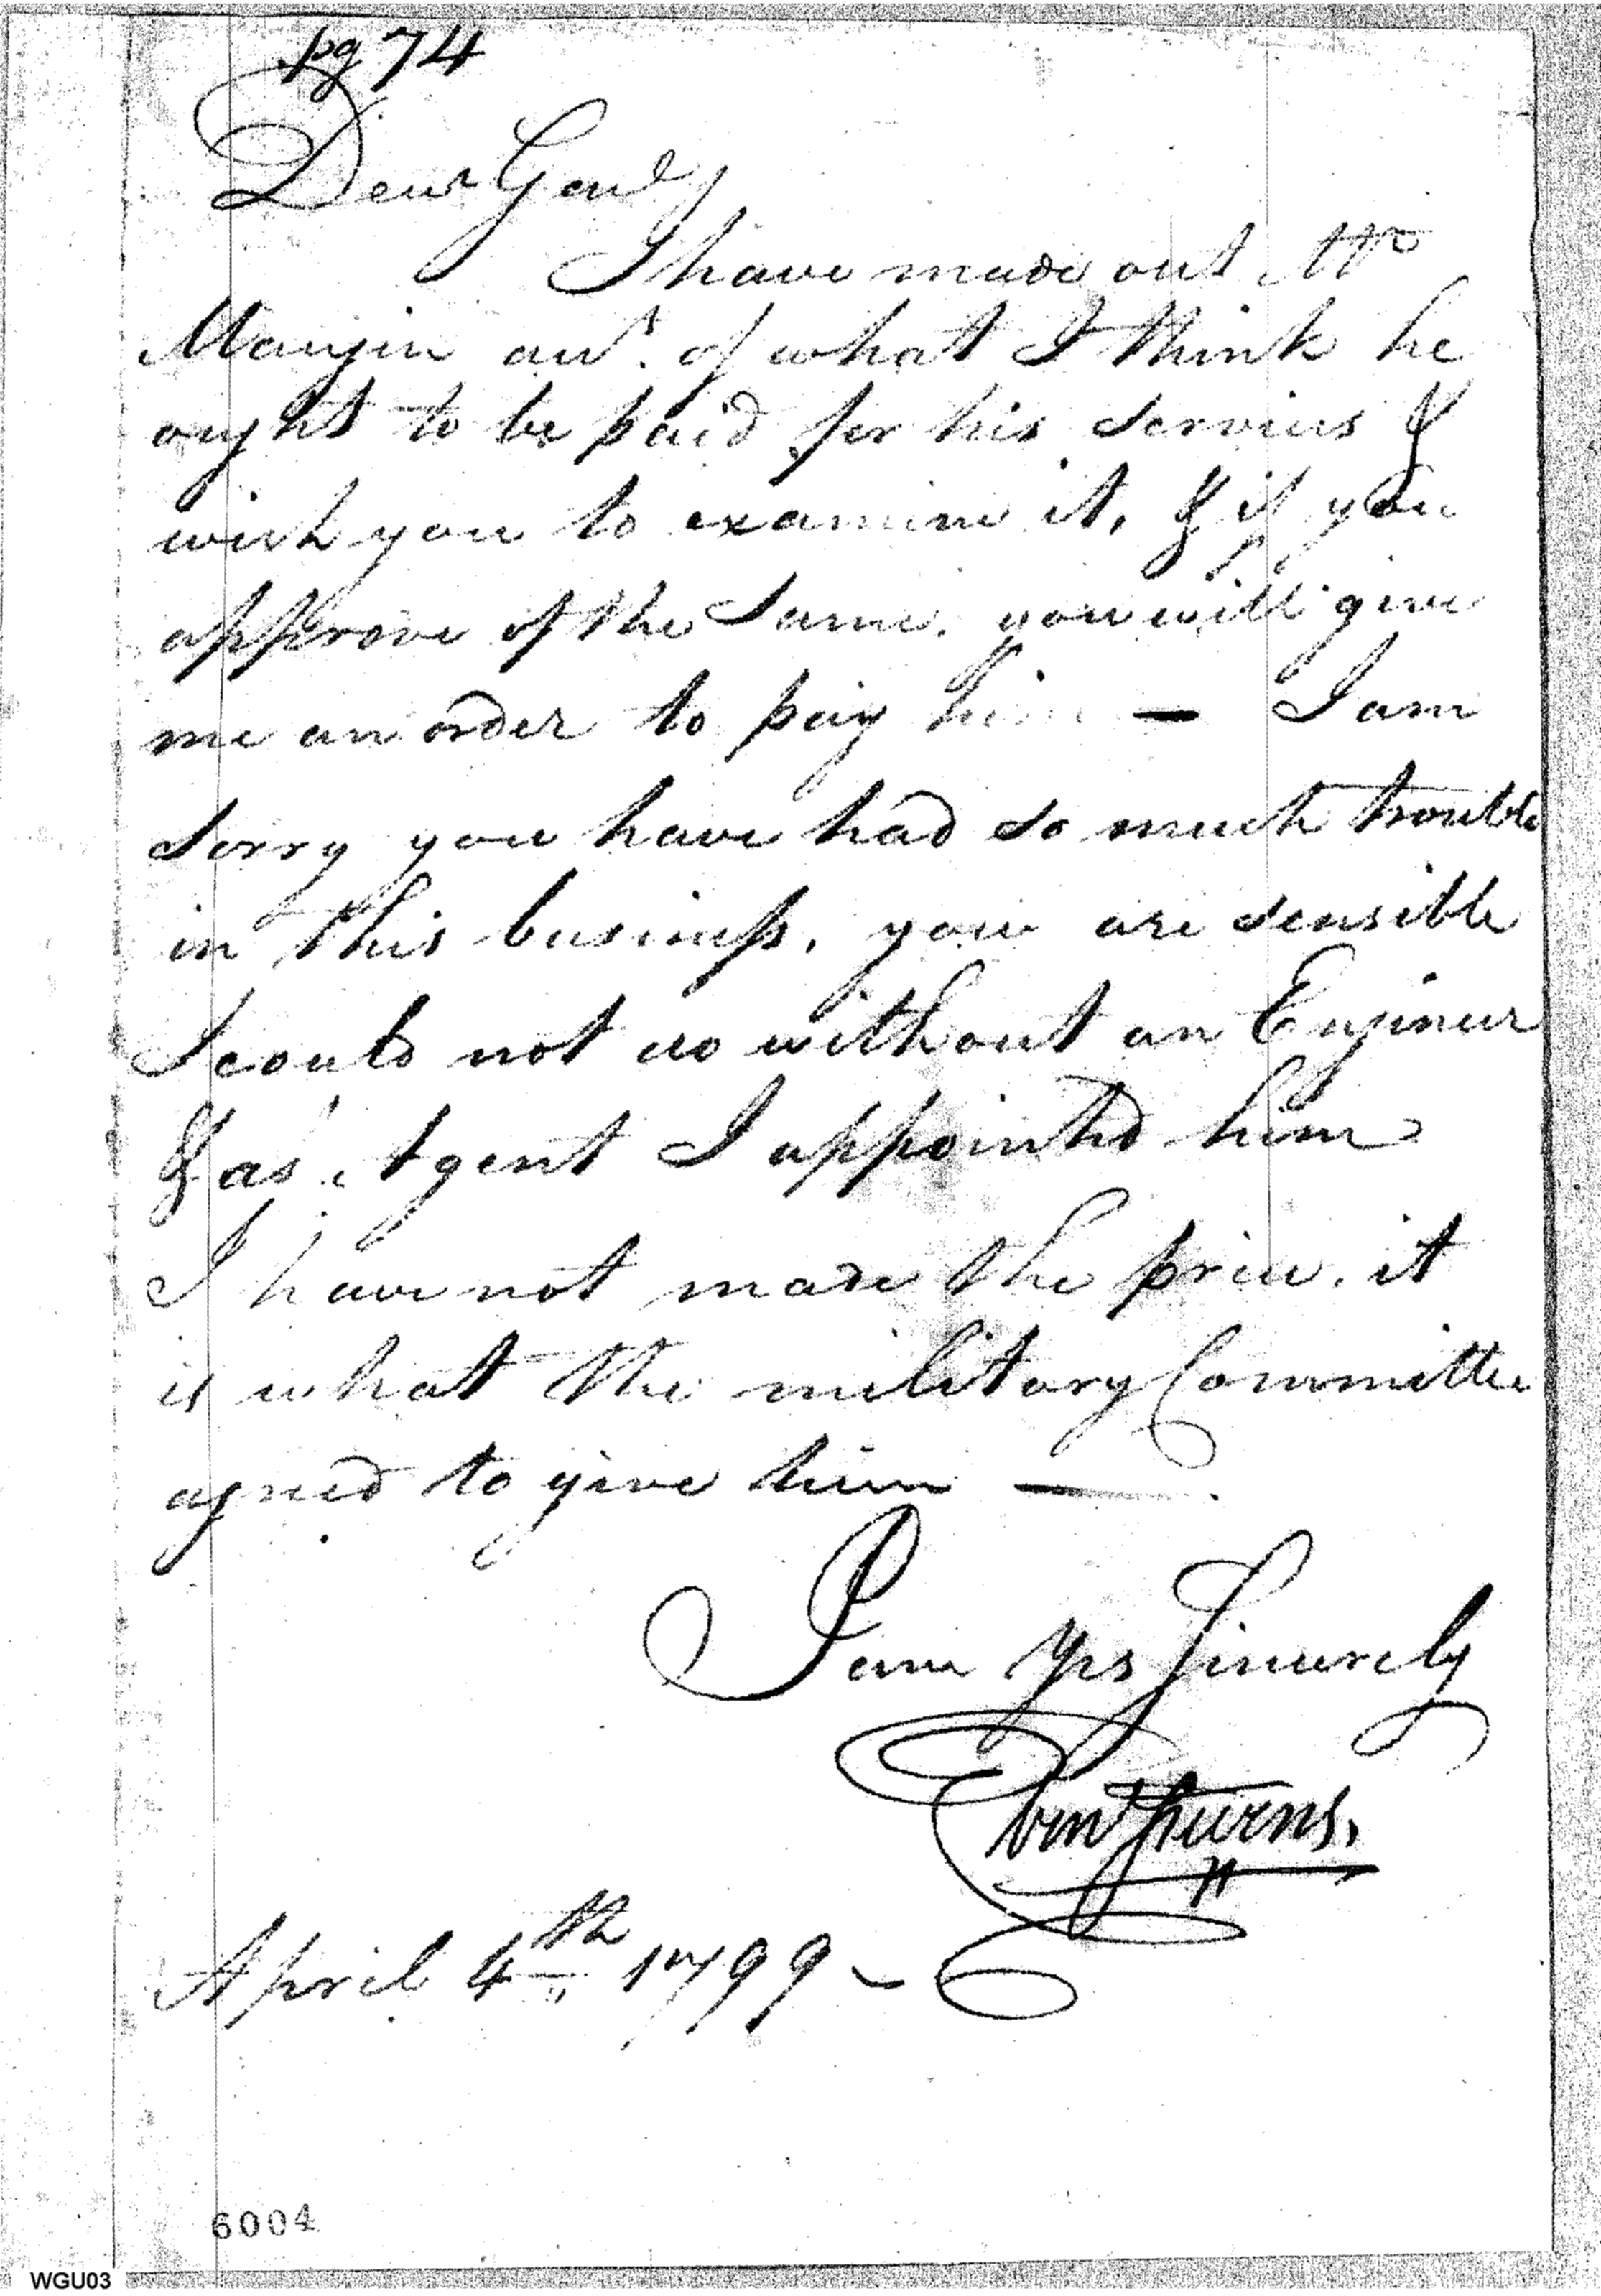 pg 74
Dear Genl
I have made out Mr
Mangin acct. of what I think he
ought to be paid for his services &
wish you to examine it, & if you
approve of the same. you will give
me an order to pay him — I am
sorry you have had so much trouble
in this business, you are sensible
I could not do without an Engineer
& as Agent I appointed him
I have not made the price. it
is what the military Committee
agreed to give him —
I am Yrs Sincerely
Ebenr Stevens.
April 4th 1799 –
6004
WGU03